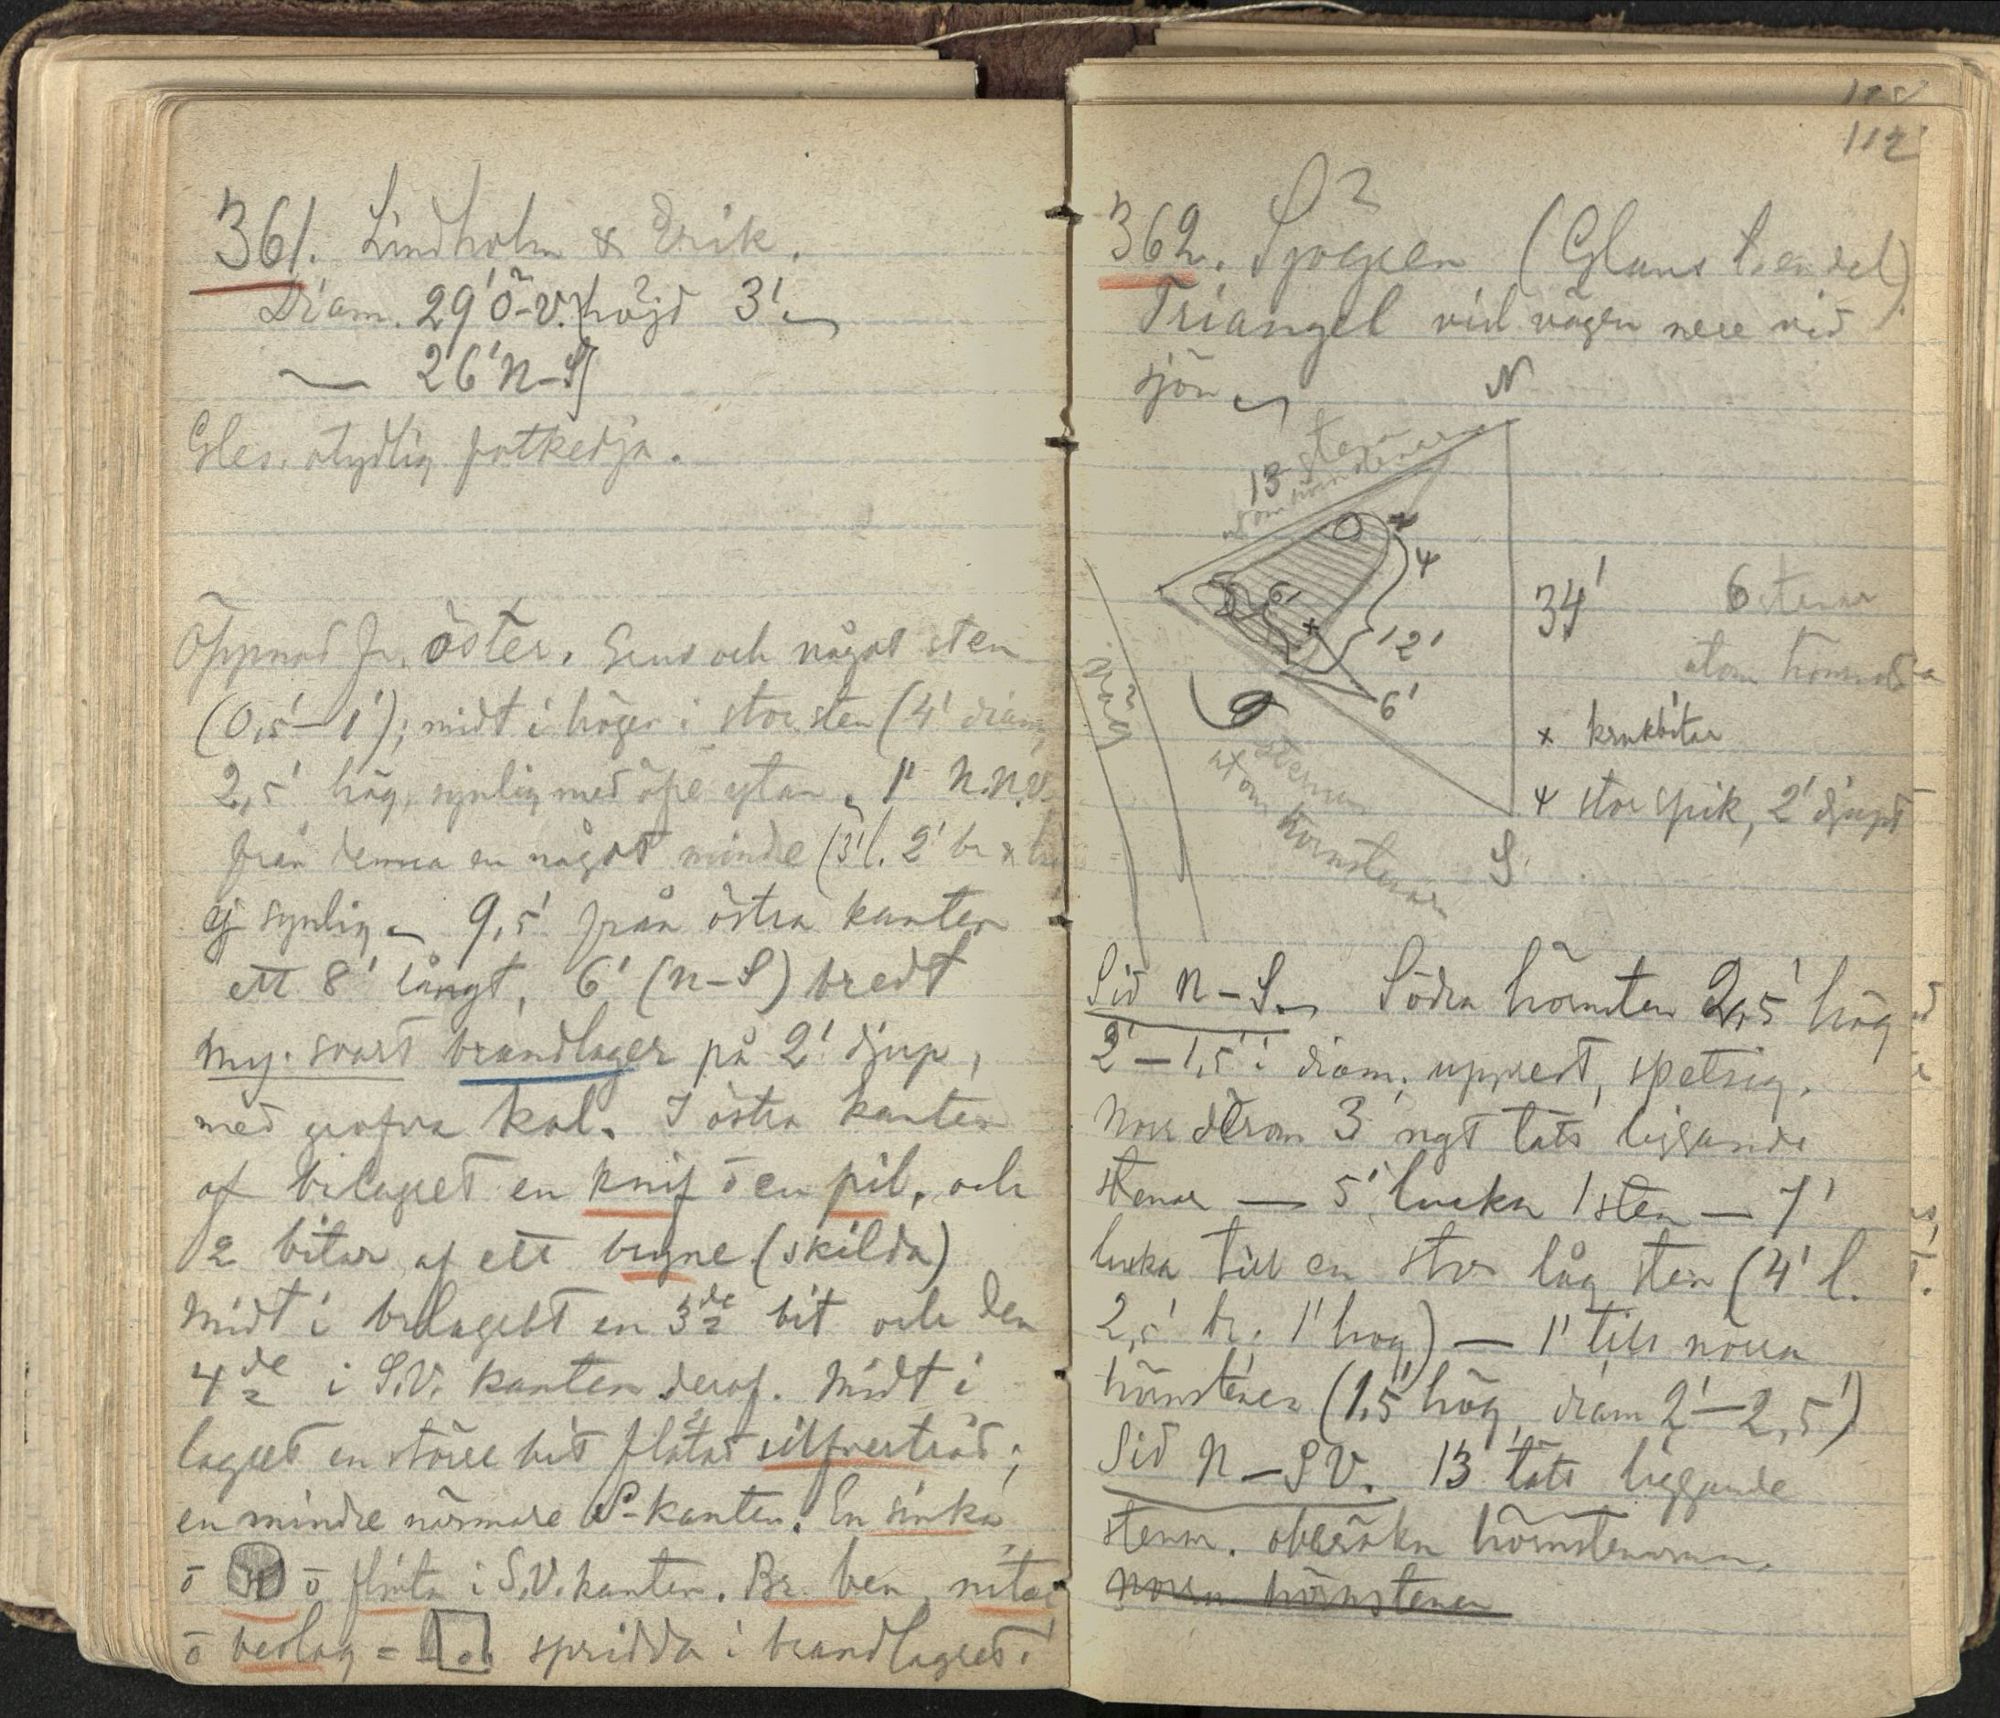 361. Lindholm & Erik.
Diam. 29' Ö-V. höjd 3'
— 26' N-S
Gles. otydlig fotkedja.
Öppnad fr. öster. Grus och något sten
(0,5'-1'); midt i högen i stor sten (4' diam,
2,5' hög, synlig med öfre ytan, 1' N.N.V.
från denna en något mindre (3' l. 2' br &
ej synlig 9,5' från östra kanten
ett 8' långt, 6' (N-S) bredt
my. svart brandlager på 2' djup,
med grofva kol. I östra kanten
af bolagret en knif o en pil, och
2 bitar af ett bryne (skilda)
Midt i brlagret en 3de bit och den
4de i S.V. kanten deraf. Midt i
lagret en större bit flätad silfvertråd;
en mindre närmare S-kanten. En sinka
o o flinta i S.V. kanten. Br. ben, nitar
o beslag = spridda i brandlagret.
112
362. Sjögren (Glans t. en del)
Triangel vid vägen nere vid
sjön
N
13 stenar
utom hörnstenar
4
6'
12'
6'
34'
6 stenar
utom hörnstena
väg
9 stenar
utom hörnstenar
x krukbitar
ψ stor spik, 2' djupt
S
Sid N-S. Södra hörnsten 2,5' hög
2'-1,5' i diam, upprest, spetsig.
Norr derom 3 ngt täts liggande
stenar — 5' lucka 1 sten — 7'
lucka till en stor låg sten (4' l.
2,5' br. 1' hög) — 1' till norra
hörnstenen (1,5' hög, diam 2'-2,5')
Sid N-SV. 13 täts liggande
stenar. oberäkn hörnstenarna.
Norra hörnstenen